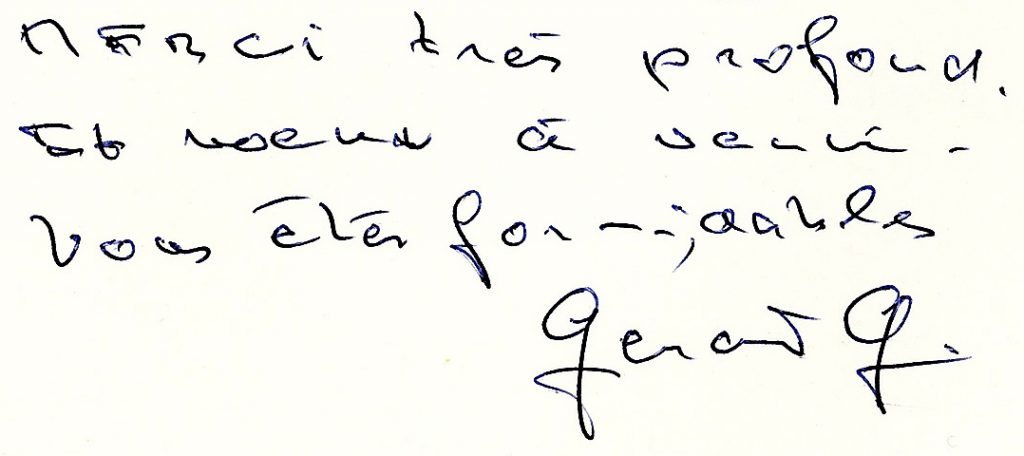 Merci très profond.
Et voeux à venir.
Vous êtes formidables
Gerard G.